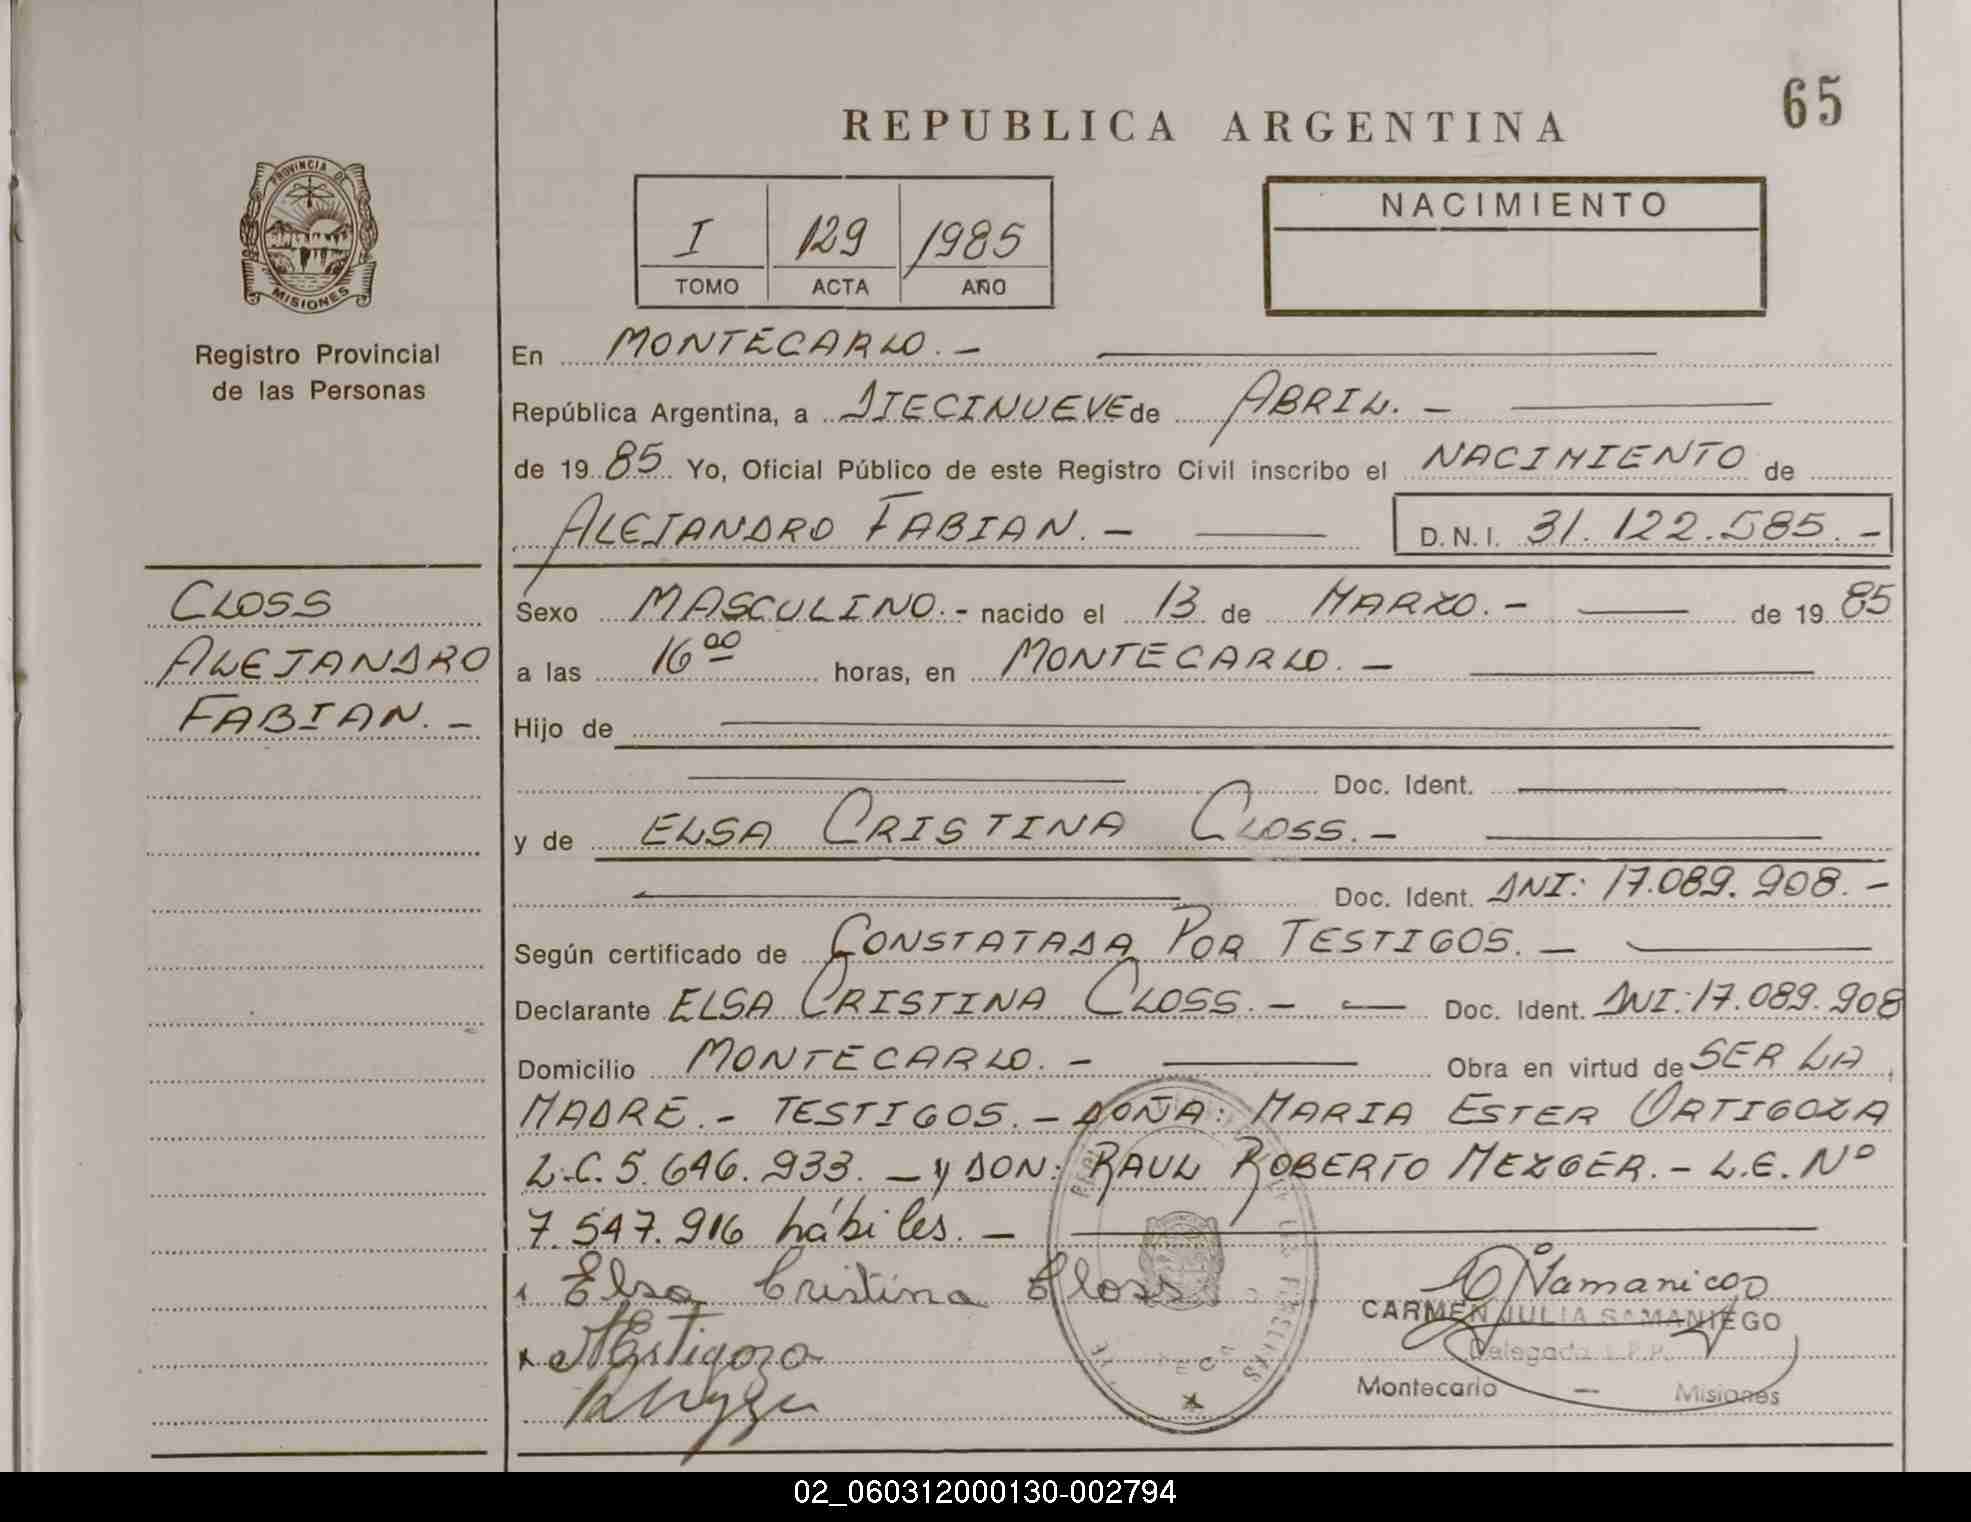 65
REPUBLICA ARGENTINA
PROVINCIA DE
MISIONES
Registro Provincial
de las Personas
I 129 1985
TOMO ACTA AÑO
NACIMIENTO
En MONTECARLO.-
República Argentina, a DIECINUEVE de ABRIL.-
de 1985 Yo, Oficial Público de este Registro Civil inscribo el NACIMIENTO de
ALEJANDRO FABIAN.- D.N.I. 31.122.585.-
CLOSS
ALEJANDRO
FABIAN.-
Sexo MASCULINO.- nacido el 13 de MARZO.- de 1985
a las 16 00 horas, en MONTECARLO.-
Hijo de
Doc. Ident.
y de ELSA CRISTINA CLOSS.-
Doc. Ident. DNI: 17.089.908.-
Según certificado de CONSTATADA POR TESTIGOS.-
Declarante ELSA CRISTINA CLOSS.- Doc. Ident. DNI: 17.089.908
Domicilio MONTECARLO.- Obra en virtud de SER LA
MADRE.- TESTIGOS.- DOÑA: MARIA ESTER ORTIGOZA
L.C. 5.646.933.- y DON: RAUL ROBERTO MEZGER.- L.E. Nº
7.547.916 hábiles.-
Elsa Cristina Closs
CARMEN JULIA SAMANIEGO
Delegada R.P.P.
Montecarlo - Misiones
02_060312000130-002794